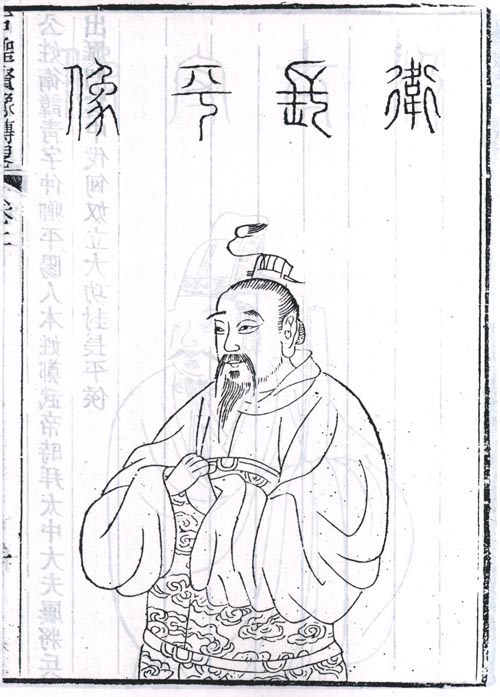 衛長平像
古聖賢像傳畧
公姓衛諱青字仲卿平陽人本姓鄭武帝時拜太中大夫屢將兵
出 伐匈奴立大功封長平侯